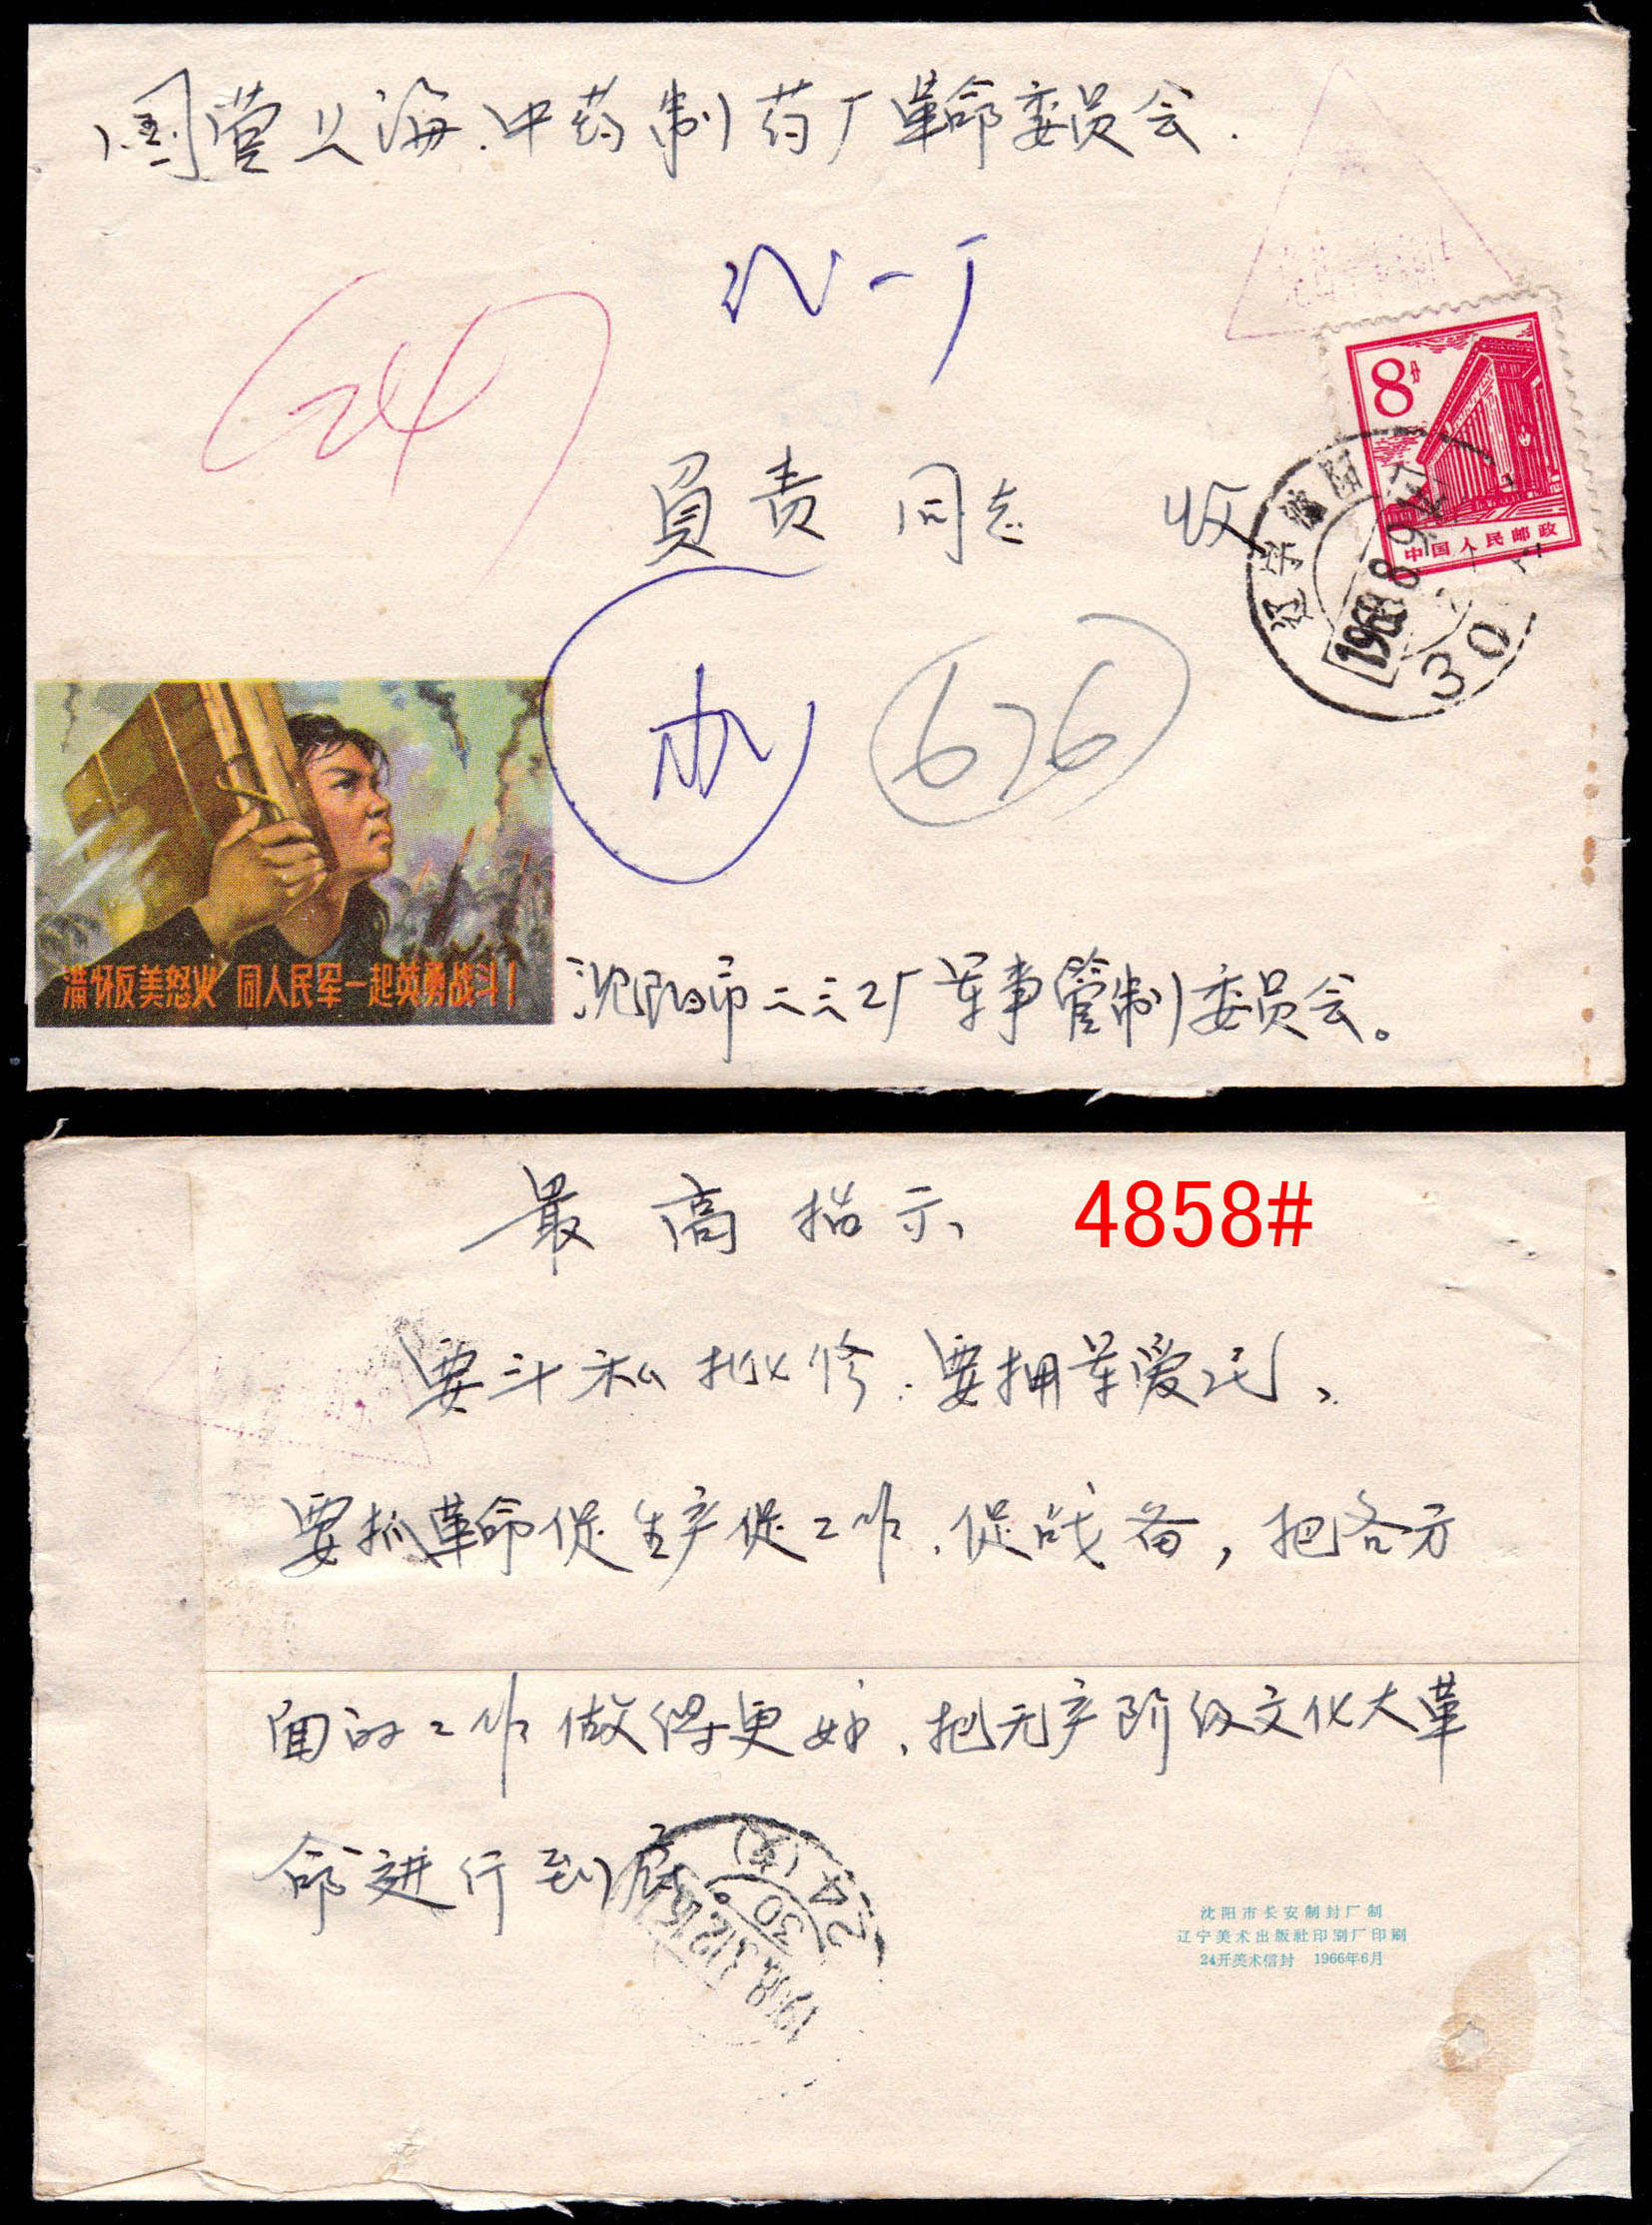 国营上海中药制药厂革命委员会.
负责 同志 收
(24)
办
626
8分
中国人民邮政
辽宁沈阳
1968
30
满怀反美怒火 同人民军一起英勇战斗！
沈阳市二三工厂军事管制委员会。
最高指示
4858#
要斗私批修.要拥军爱民,
要抓革命促生产促工作.促战备,把各方
面的工作做得更好、把无产阶级文化大革
命进行到底
24(支)
30
1968.3.12.15
沈阳市长安制封厂制
辽宁美术出版社印刷厂印刷
24开美术信封 1966年6月